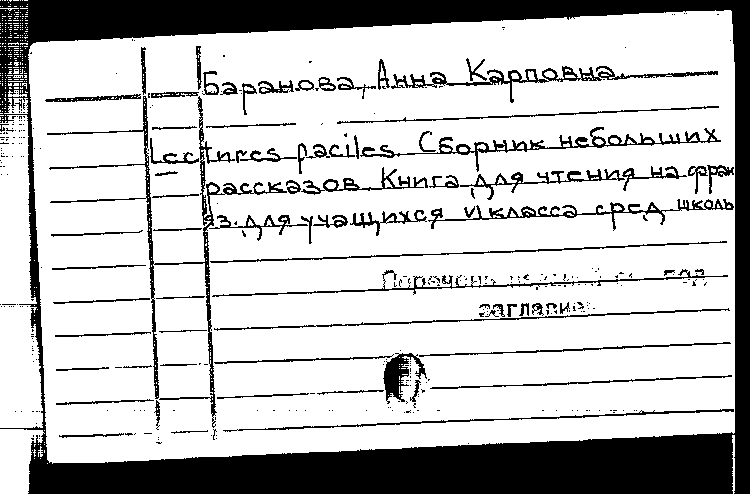 Баранова, Анна Карповна.
Lectures faciles. Сборник небольших
рассказов. Книга для чтения на фран
яз. для учащихся VI класса сред школы
под
заглавием